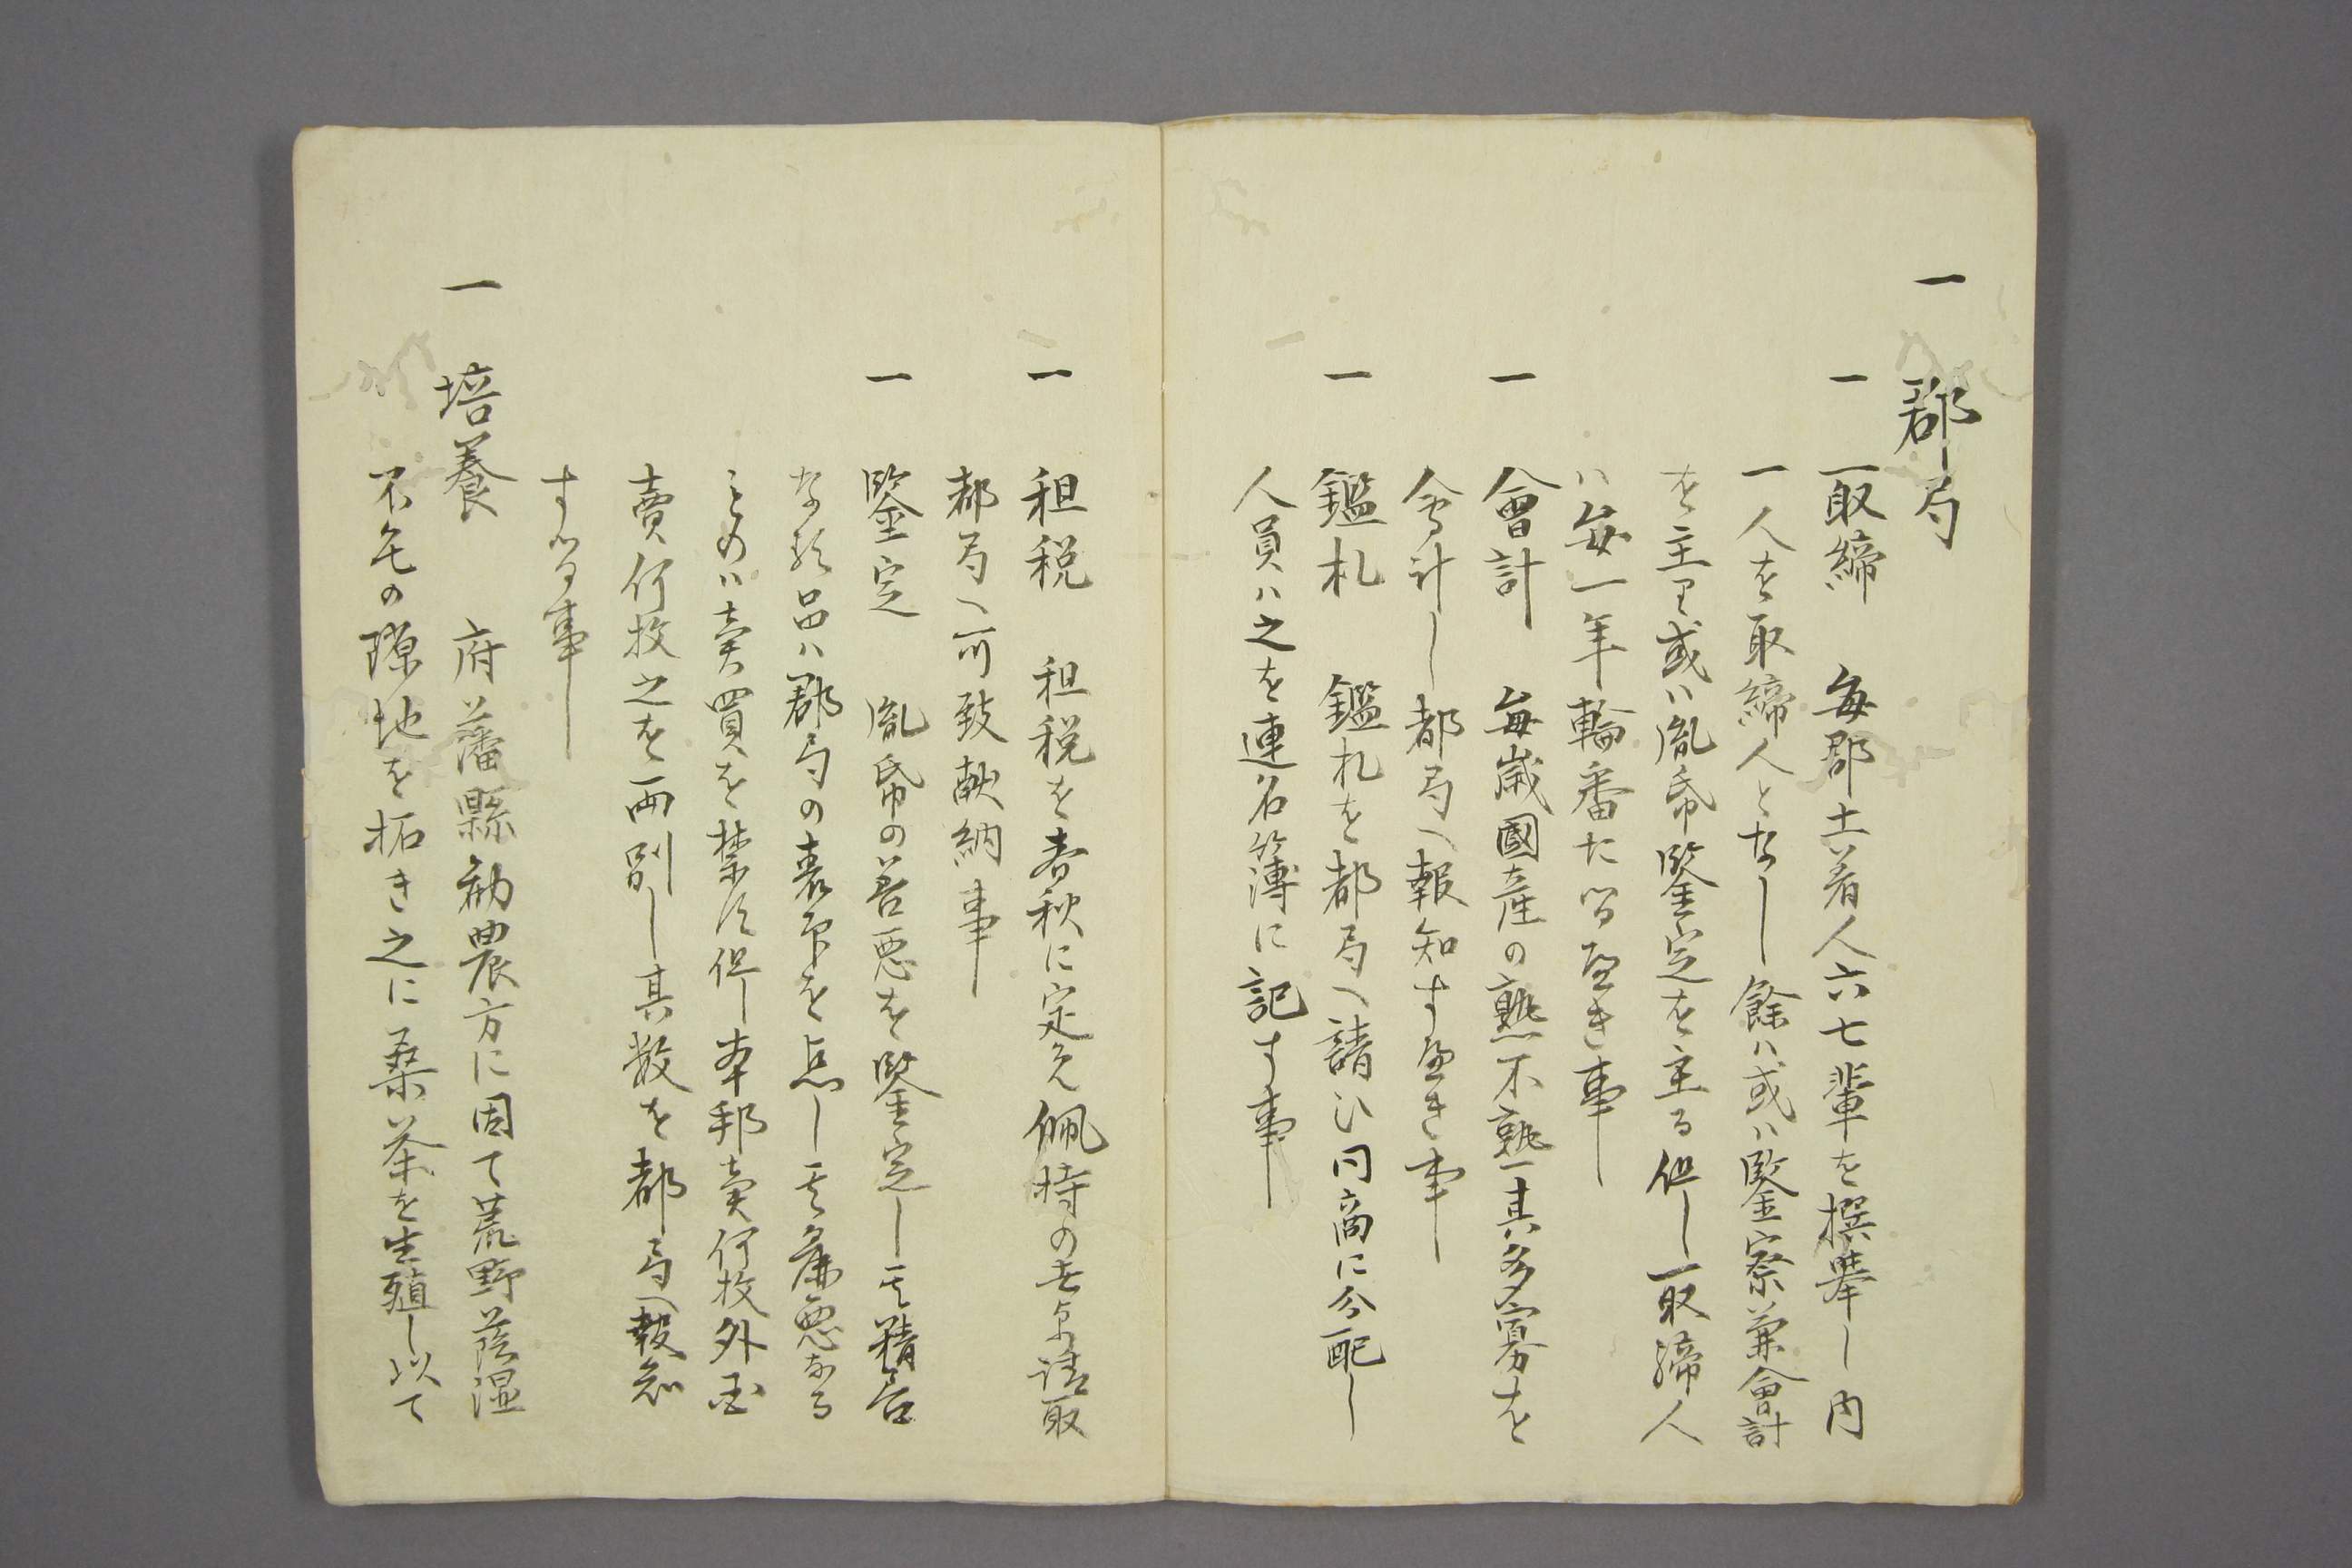 一　郡局
一　取締　毎郡土着人六七輩を撰挙し内
一人を取締人となし餘ハ或ハ鑒察兼會計
を主り或ハ胤帋鑒定を主る但し取締人
ハ毎一年輪番たるべき事
一　會計　毎歳國産の熟不熟其多寡を
會計し都局へ報知すべき事
一　鑑札　鑑札を都局へ請ひ同商に分配し
人員ハ之を連名簿に記す事
一　租税　租税を春秋に定め佩時の
都局へ可致献納事
一　鑒定　胤帋の善悪を鑒定し其精否
なる品ハ郡局の表印を点し其麁悪なる
ものハ賣買を禁ず但し本邦賣何枚外国
賣何枚之を両別し其数を都局へ報知
する事
一　培養　府藩縣勧農方に因て荒野蔭湿
不毛の隙地を拓き之に桑茶を生殖し以て